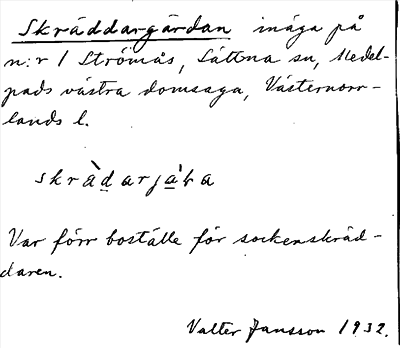 Skräddargärdan inäga på
n:r 1 Strömås, Sättna sn, Medel-
pads västra domsaga, Västernorr-
lands l.
skrädarjäa
Var förr boställe för sockenskräd-
daren.
Valter Jansson 1932.